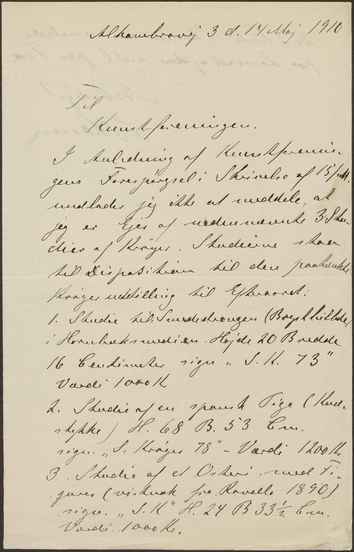 Alhambravej 3 d. 14 Maj 1910
Til
Kunstforeningen.
I Anledning af Kunstforenin-
gens Forespørgsel i Skrivelse af
undlader jeg ikke at meddele, at
jeg er Ejer af nedennævnte 3 Stu-
dier af Krøyer. Studierne staar
til Disposition til den paatænkte
Krøyer Udstilling til Efteraaret.
1. Studie til Smededrengen (Brystbillede)
i Hornbæksmedien. Højde 20 Bredde
16 Centimeter sign. „S. K. 73"
Værdi 1000 Kr
2. Studie af en spansk Pige (Knæ-
stykke) H. 68 B. 53 Cm.
sign. „S. Krøyer 78" – Værdi 1200 Kr.
3. Studie af et Osteri med Fi-
gurer (vistnok fra Ravello 1890)
sign. „S. K" H. 24 B 33½ Cm.
Værdi. 1000 Kr.